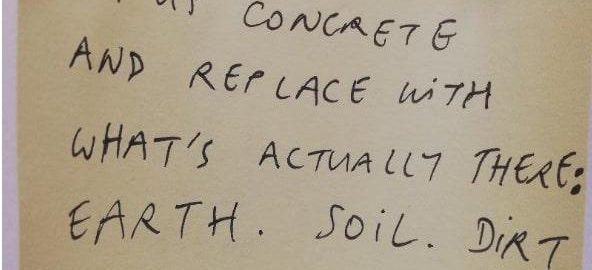 CONCRETE
AND REPLACE WITH
WHAT'S ACTUALLY THERE:
EARTH. SOIL. DIRT